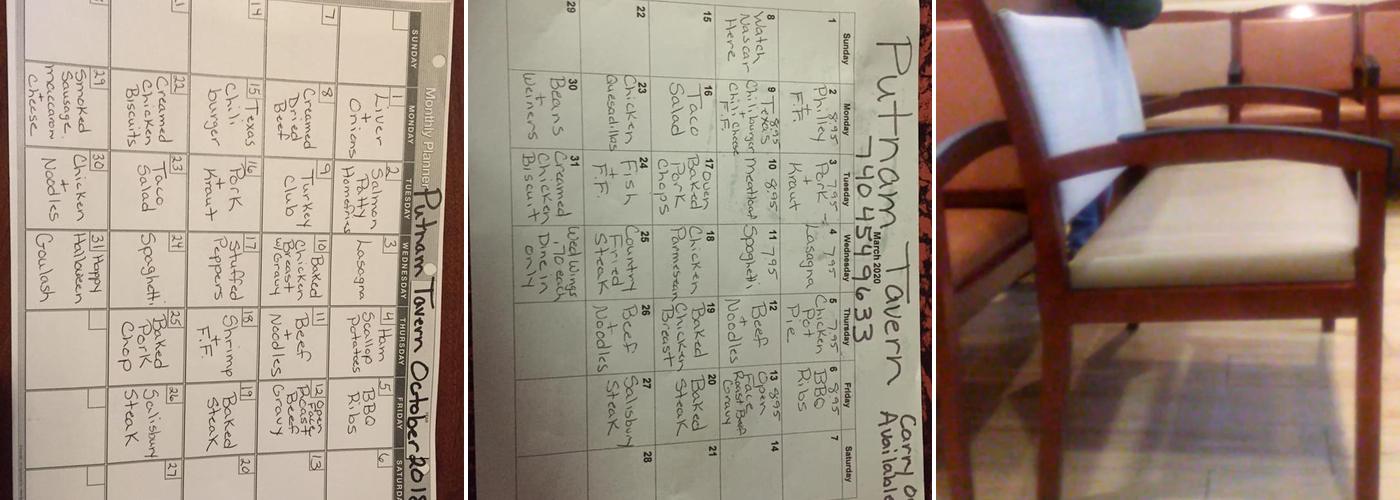 Monthly Planner
Putnam Tavern October 2018
SUNDAY MONDAY TUESDAY WEDNESDAY THURSDAY FRIDAY
1 Liver + Onions
2 Salmon Patty Homefries
3 Lasagna
4 Ham Scallop Potatoes
5 BBQ Ribs
6
7
8 Creamed Dried Beef
9 Turkey Club
10 Baked Chicken Breast w/Gravy
11 Beef + Noodles
12 Open Face Roast Beef Gravy
13
14
15 Texas Chili burger
16 Pork + Kraut
17 Stuffed Peppers
18 Shrimp + F.F.
19 Baked Steak
20
22 Creamed Chicken Biscuits
23 Taco Salad
24 Spaghetti
25 Baked Pork Chop
26 Salisbury Steak
27
29 Smoked Sausage maccaroni + cheese
30 Chicken + Noodles
31 Happy Halloween Goulash
Putnam Tavern Carry
7404549633 Available
March 2020
Sunday Monday Tuesday Wednesday Thursday Friday Saturday
1
2 8.95 Philley + F.F.
3 7.95 Pork + Kraut
4 7.95 Lasagna
5 7.95 Chicken Pot Pie
6 8.95 BBQ Ribs
7
8 Watch Nascar Here
9 8.95 Texas Chiliburger Chili Cheese F.F.
10 8.95 meatloaf
11 7.95 Spaghetti
12 Beef + Noodles
13 8.95 Open Face Roast Beef Gravy
14
15
16 Taco Salad
17 Oven Baked Pork Chops
18 Chicken Parmesean
19 Baked Chicken Breast
20 Baked Steak
21
22
23 Chicken Quesadillas
24 Fish + F.F.
25 Country Fried Steak
26 Beef + Noodles
27 Salisbury Steak
28
29
30 Beans + Weiners
31 Creamed Chicken Biscuit
Wed Wings .70 each Dine in only